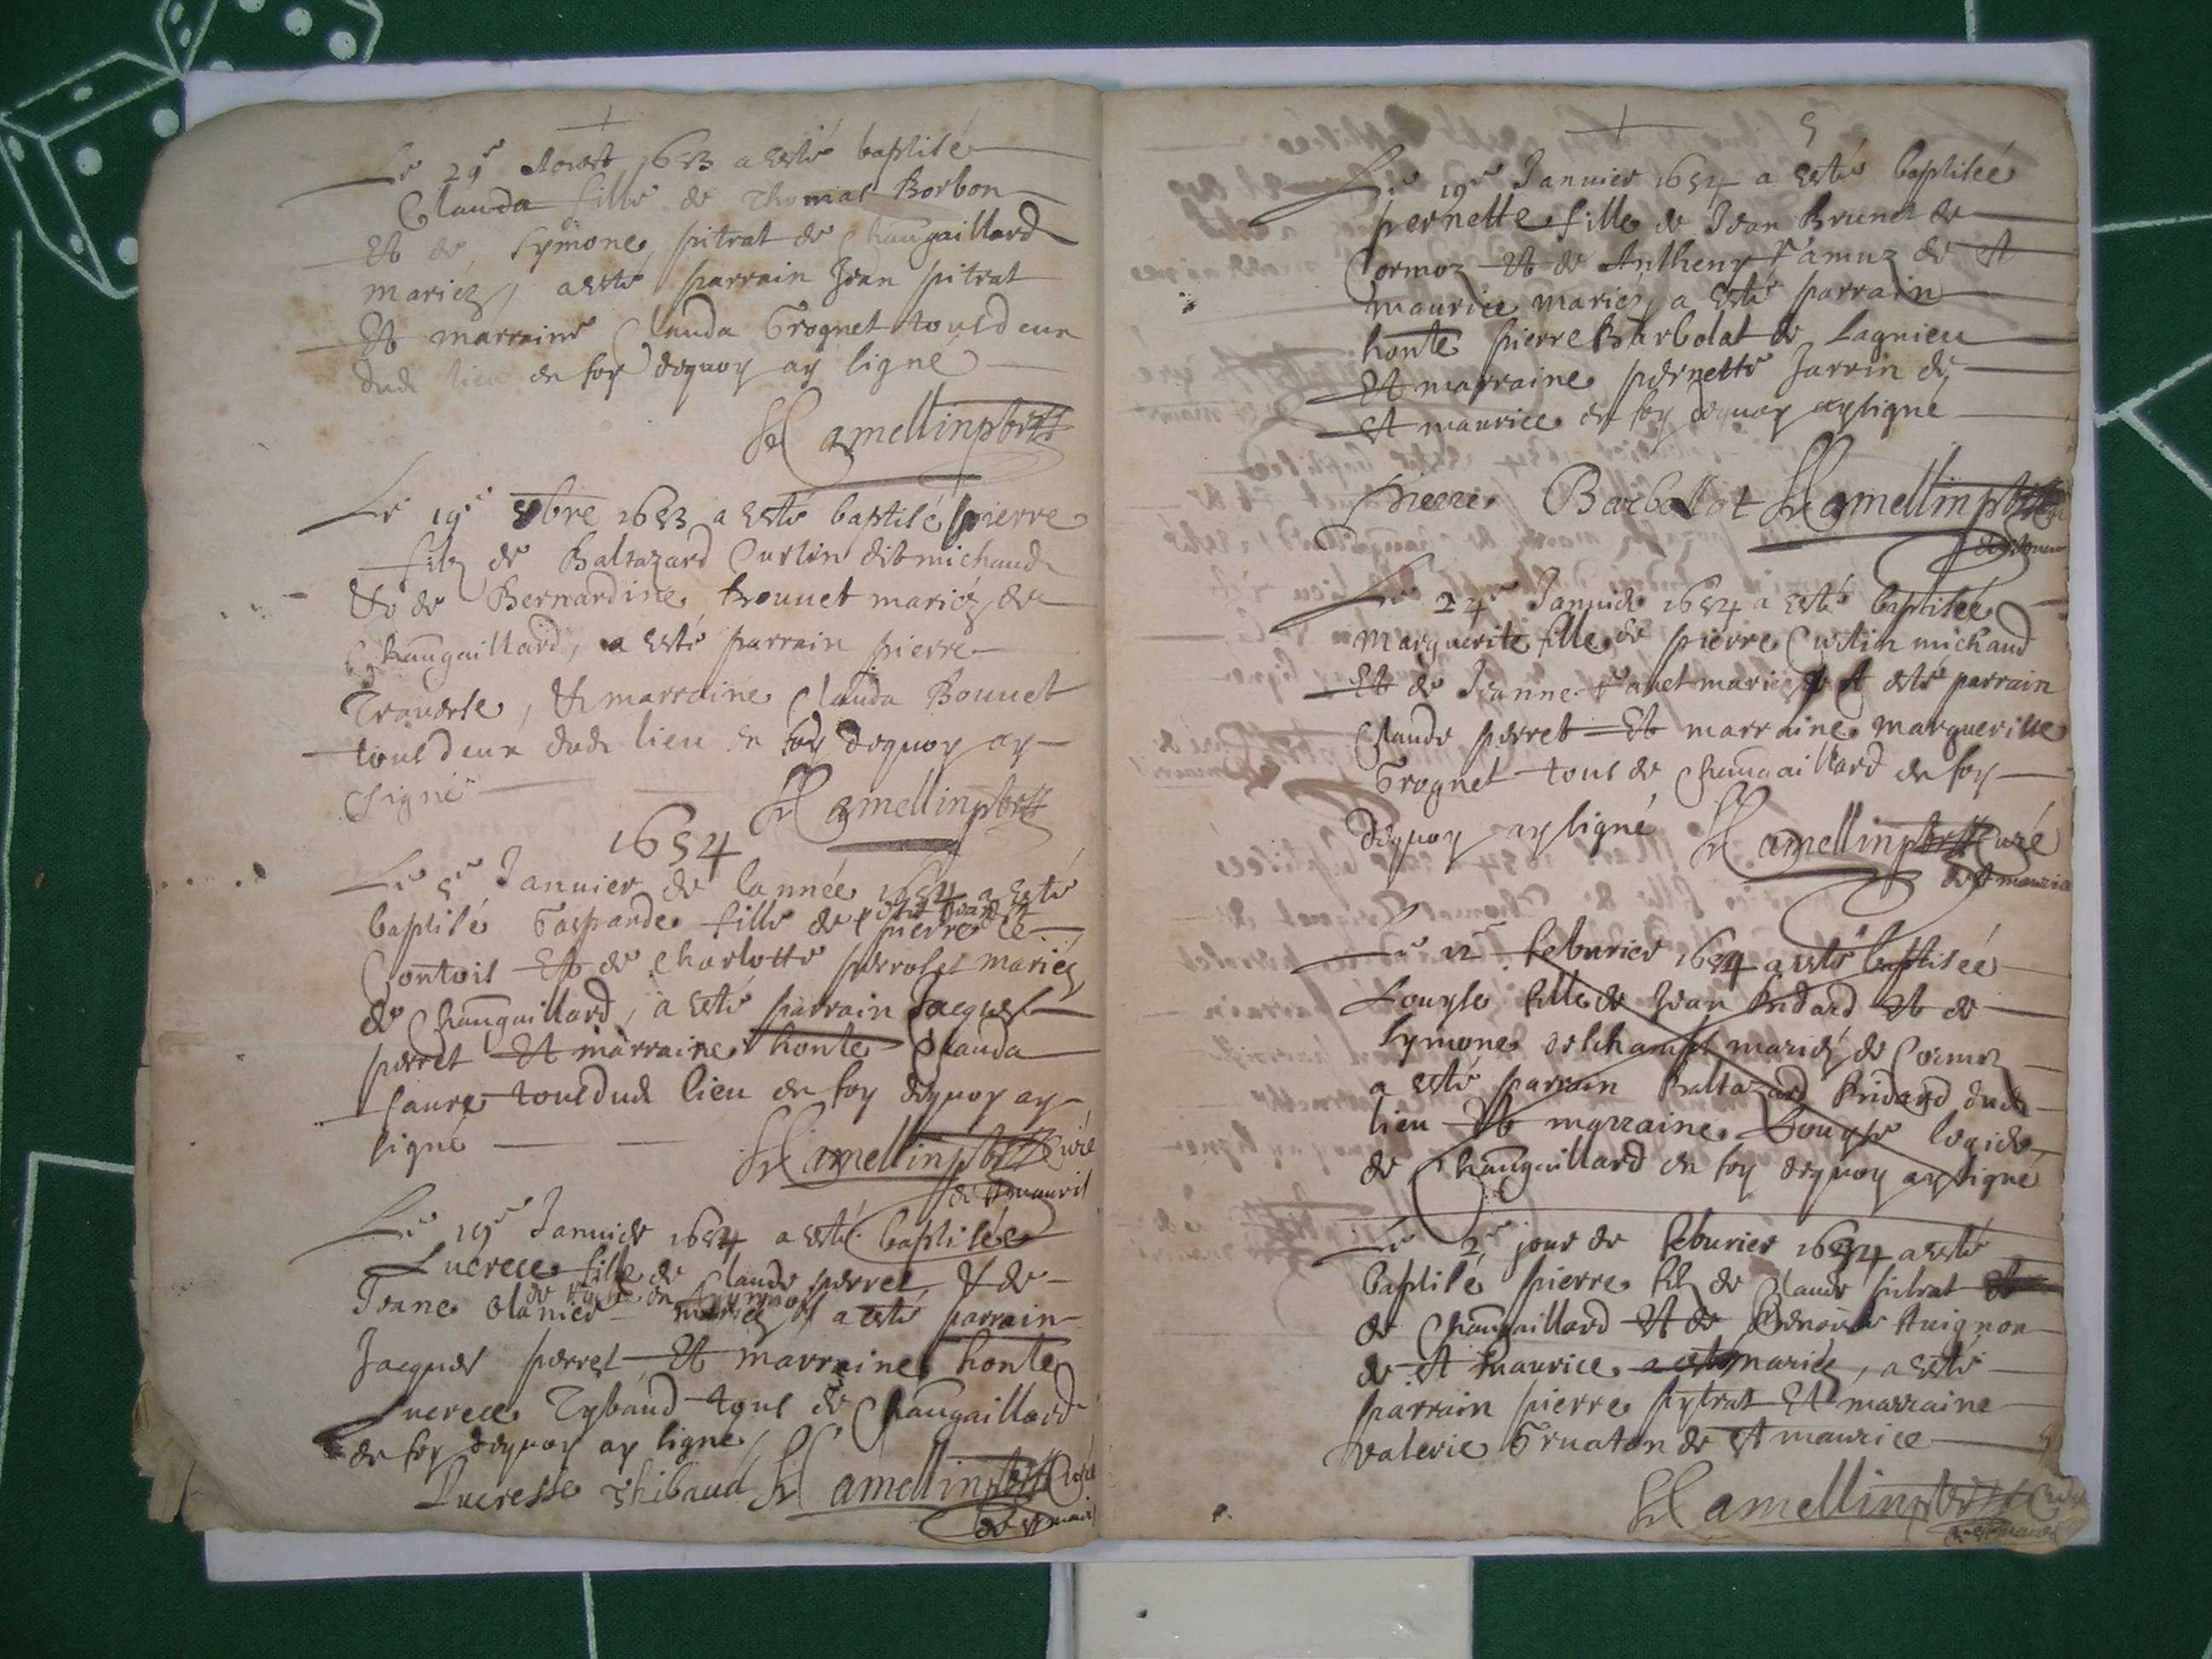 Le 29e Aoust 1653 a esté baptisé
Clauda fille de Thomas Borbon
Et de Symone pitrat de Chaugaillard
mariez, a esté parrain Jean pitrat
Et marraine Clauda Grognet tousdeux
dud lieu en foy dequoy ay signé
Hamellin pbre
Le 19e 8bre 1653 a esté baptisé pierre
filz de Baltazard Curtin dit michaud
Et de Bernardine Bouuet mariéz de
Chaugaillard, a esté parrain pierre
Trauerse, Et marraine Clauda Bouuet
tousdeux dud lieu en foy dequoy ay
signé
Hamellin pbre
1654
Le 5e Januier de lannée 1654 a esté
baptisé Gasparde fille de pierre
Contois Et de Charlotte perrolet mariéz
de Chaugaillard, a esté parrain Jacques
perret Et marraine honte Clauda
faure tousdud lieu en foy dequoy ay
signé
Hamellin pbre Curé
de St mauris
Le 19e Januier 1654 a esté baptisée
Lucrece fille de Claude perret, & de
Jeane Olanier mariez a esté parrain
Jacques perret Et marraine honte
Lucrece Tybaud tous de Chaugaillard
en foy dequoy ay signé
Lucresse Thibaud Hamellin pbre Curé
de St mauris
5
Le 19e Januier 1654 a esté baptisée
pernette fille de Jean Brunet de
Cormoz Et de Antheny Ramuz de St
maurice mariéz, a esté parrain
honte pierre Barbolat de Lagnieu
Et marraine pernette Jarrin de
St maurice en foy dequoy ay signé
pierre Barbollat Hamellin pbre
Le 24e Januier 1654 a esté baptisée
Marguerite fille de pierre Curtin michaud
Et de Jeanne mariez a esté parrain
Claude perret Et marraine margueritte
Grognet tous de Chaugaillard en foy
dequoy ay signé Hamellin pbre Curé
de St maurice
Le 12e feburier 1654 a esté baptisée
Louyse fille de Jean Bridard Et de
Symone deschamps mariéz de Cormoz
a esté parrain Baltazard Bridard dud
lieu Et marraine Louyse
de Chaugaillard en foy dequoy ay signé
Le 2e jour de feburier 1654 a esté
baptisé pierre filz de Claude pitrat
de Chaugaillard Et de Benoiste Auignon
de St maurice mariéz, a esté
parrain pierre pytrat Et marraine
valerie Gruaton de St maurice
Hamellin pbre Curé